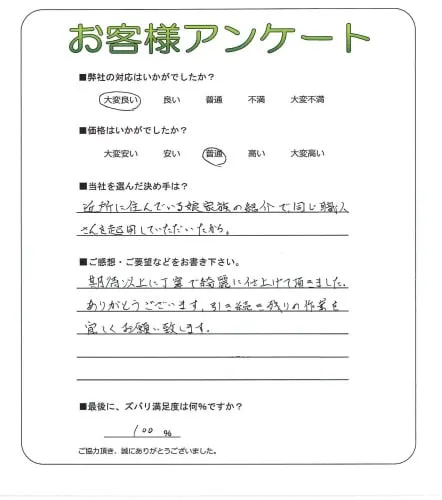 お客様アンケート
■弊社の対応はいかがでしたか?
大変良い 良い 普通 不満 大変不満
■価格はいかがでしたか?
大変安い 安い 普通 高い 大変高い
■当社を選んだ決め手は?
近所に住んでいる娘家族の紹介で、同じ職人
さんを起用していただいたから。
■ご感想・ご要望などをお書き下さい。
期待以上に丁寧で綺麗に仕上げて頂きました。
ありがとうございます、引き続き残りの作業も
宜しくお願い致します。
■最後に、ズバリ満足度は何%ですか?
100 %
ご協力頂き、誠にありがとうございました。